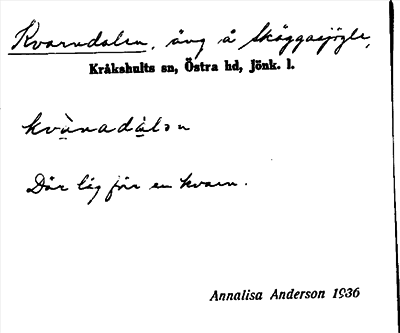 Kvarndalen, äng å Skäggasjögle,
Kråkshults sn, Östra hd, Jönk. l.
kvànadàlən
Där låg förr en kvarn.
Annalisa Anderson 1936